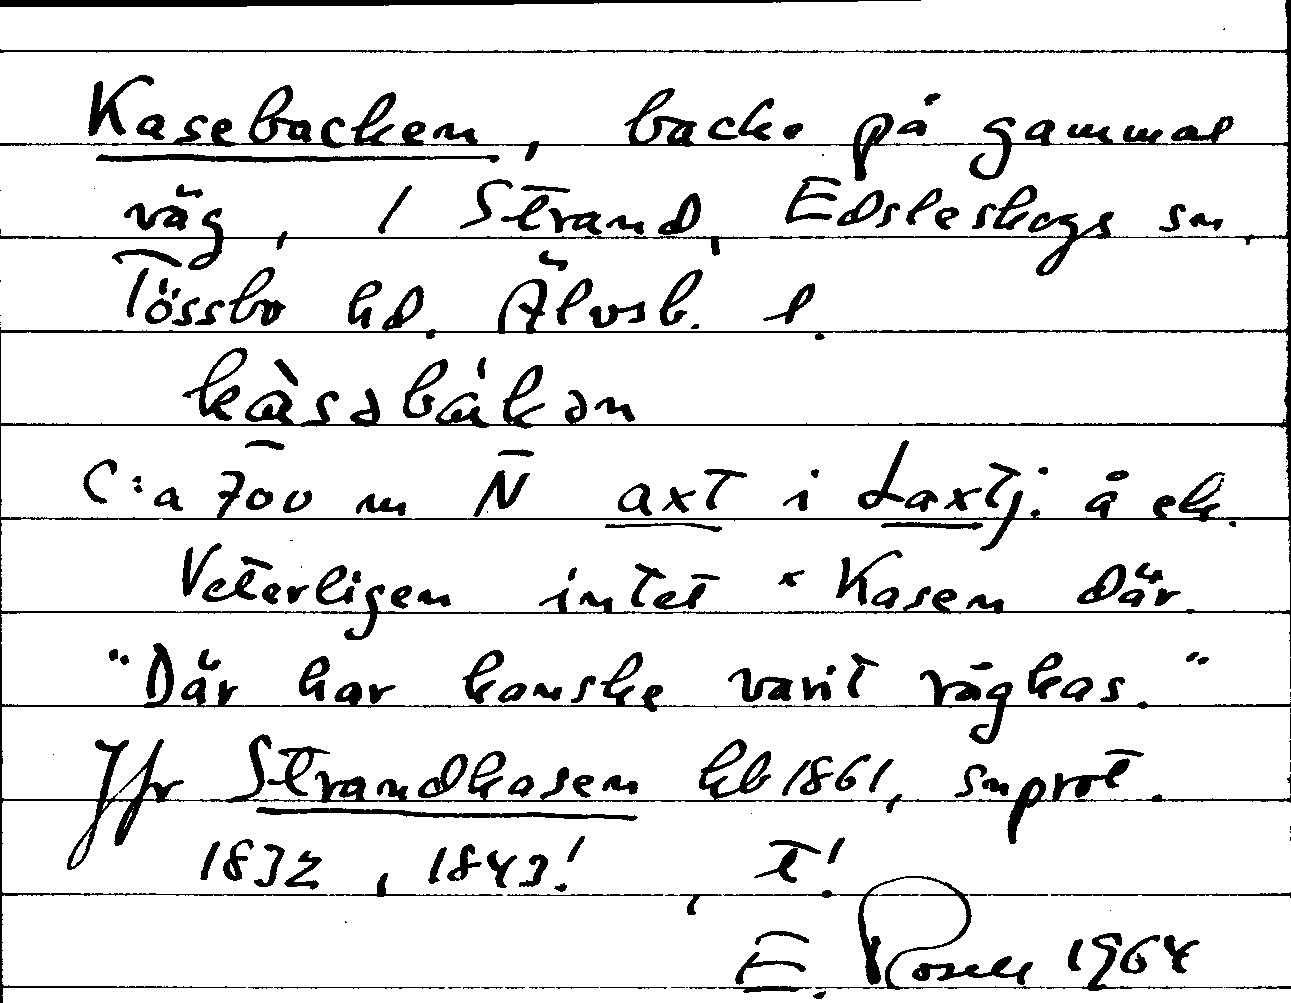 Kasebacken, backe på gammal
väg, 1 Strand, Edsleskogs sn,
Tössbo hd. Älvsb. l.
kàsəbákən
C:a 700 m N axt i Laxtj. å ek.
Veterligen intet * Kasen där.
"Där har kanske varit vägkas."
Jfr Strandkasen hb 1861, snprot.
1832, 1843! t!
E. 1964